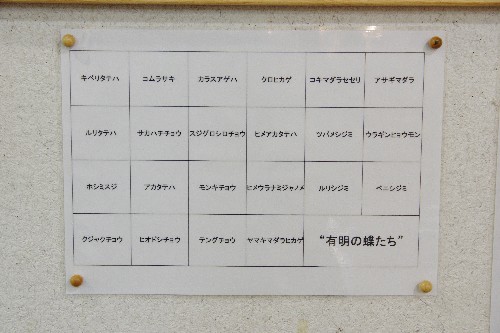 キベリタテハ コムラサキ カラスアゲハ クロヒカゲ コキマダラセセリ アサギマダラ
ルリタテハ サカハチチョウ スジグロシロチョウ ヒメアカタテハ ツバメシジミ ウラギンヒョウモン
ホシミスジ アカタテハ モンキチョウ ヒメウラナミジャノメ ルリシジミ ベニシジミ
クジャクチョウ ヒオドシチョウ テングチョウ ヤマキマダラヒカゲ “有明の蝶たち”